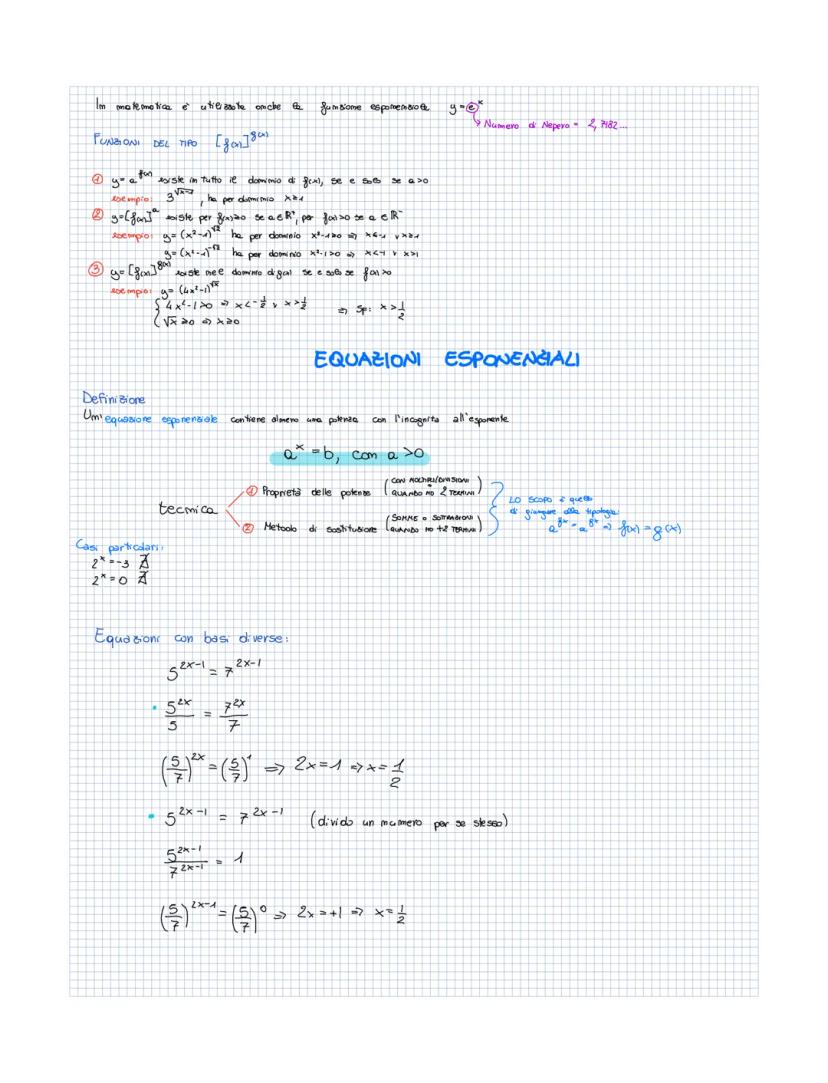 In matematica è utilizzata anche la funzione esponenziale y = e^x
Numero di Nepero = 2,7182...
FUNZIONI DEL TIPO [f(x)]^g(x)
① y = a^f(x) esiste in tutto il dominio di f(x), se e solo se a>0
esempio: 3^√x-1, ha per dominio x≥1
② y=[f(x)]^a esiste per f(x)≥0 se a∈R⁺, per f(x)>0 se a∈R⁻
esempio: y=(x²-1)^√2 ha per dominio x²-1≥0 ⇒ x≤-1 ∨ x≥1
y=(x²-1)^-√2 ha per dominio x²-1>0 ⇒ x<-1 ∨ x>1
③ y=[f(x)]^g(x) esiste nel dominio di g(x) se e solo se f(x)>0
esempio: y=(4x²-1)^√x
4x²-1>0 ⇒ x<-1/2 ∨ x>1/2 ⇒ Sp: x>1/2
√x≥0 ⇒ x≥0
EQUAZIONI ESPONENZIALI
Definizione
Un'equazione esponenziale contiene almeno una potenza con l'incognita all'esponente
a^x = b, con a>0
tecnica
① Proprietà delle potenze (CON MOLTIPLI/DIVISIONI QUANDO HO 2 TERMINI)
② Metodo di sostituzione (SOMME O SOTTRAZIONI QUANDO HO +2 TERMINI)
LO SCOPO è quello
di giungere alla tipologia:
a^fx = a^gx ⇒ f(x)=g(x)
Casi particolari:
2^x=-3 ∄
2^x=0 ∄
Equazioni con basi diverse:
5^2x-1 = 7^2x-1
• 5^2x/5 = 7^2x/7
(5/7)^2x = (5/7)^1 ⇒ 2x=1 ⇒ x=1/2
• 5^2x-1 = 7^2x-1 (divido un numero per se stesso)
5^2x-1/7^2x-1 = 1
(5/7)^2x-1 = (5/7)^0 ⇒ 2x=+1 ⇒ x=1/2